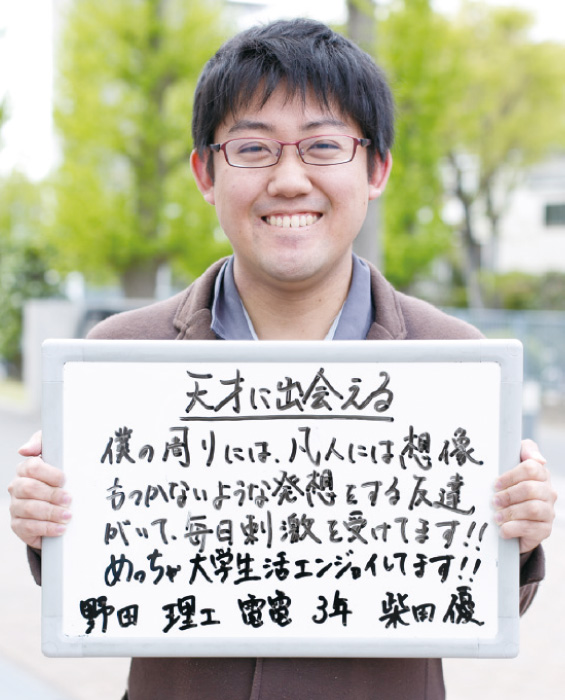 天才に出会える
僕の周りには、凡人には想像
もつかないような発想をする友達
がいて、毎日刺激を受けてます!!
めっちゃ大学生活エンジョイしてます!!
野田 理工 電電 3年 柴田 優